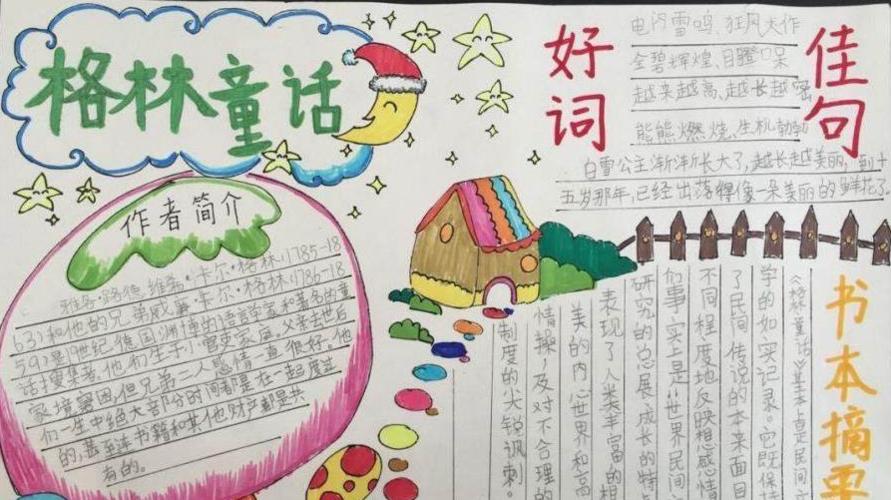 格林童话
作者简介
雅各·路德维希·卡尔·格林(1785-18
63)和他的兄弟威廉·卡尔·格林(1786-18
59)是19世纪德国渊博的语言学家和著名的童
话搜集者。他们生于一官吏家庭。父亲去世后
家境窘困,但兄弟二人感情一直很好。他
们一生中绝大部分时间都是在一起度过
的,甚至连书籍和其他财产都是共
有的。
好词
佳句
电闪雪鸣、狂风大作
金碧辉煌、目瞪口呆
越来越高、越长越密
熊熊燃烧、生机勃勃
白雪公主渐渐长大了,越长越美丽,到十
五岁那年,已经出落得像一朵美丽的鲜花了
书本摘要
《格林童话》基本上是民间
学的如实记录。它既保
了民间传说的本来面目
不同程度地反映相感性
们事实上是"世界民间
研究的总展成长的特点
表现了人类丰富的相
美的内心世界和高
情操,及对不合理的
制度的尖锐讽刺。